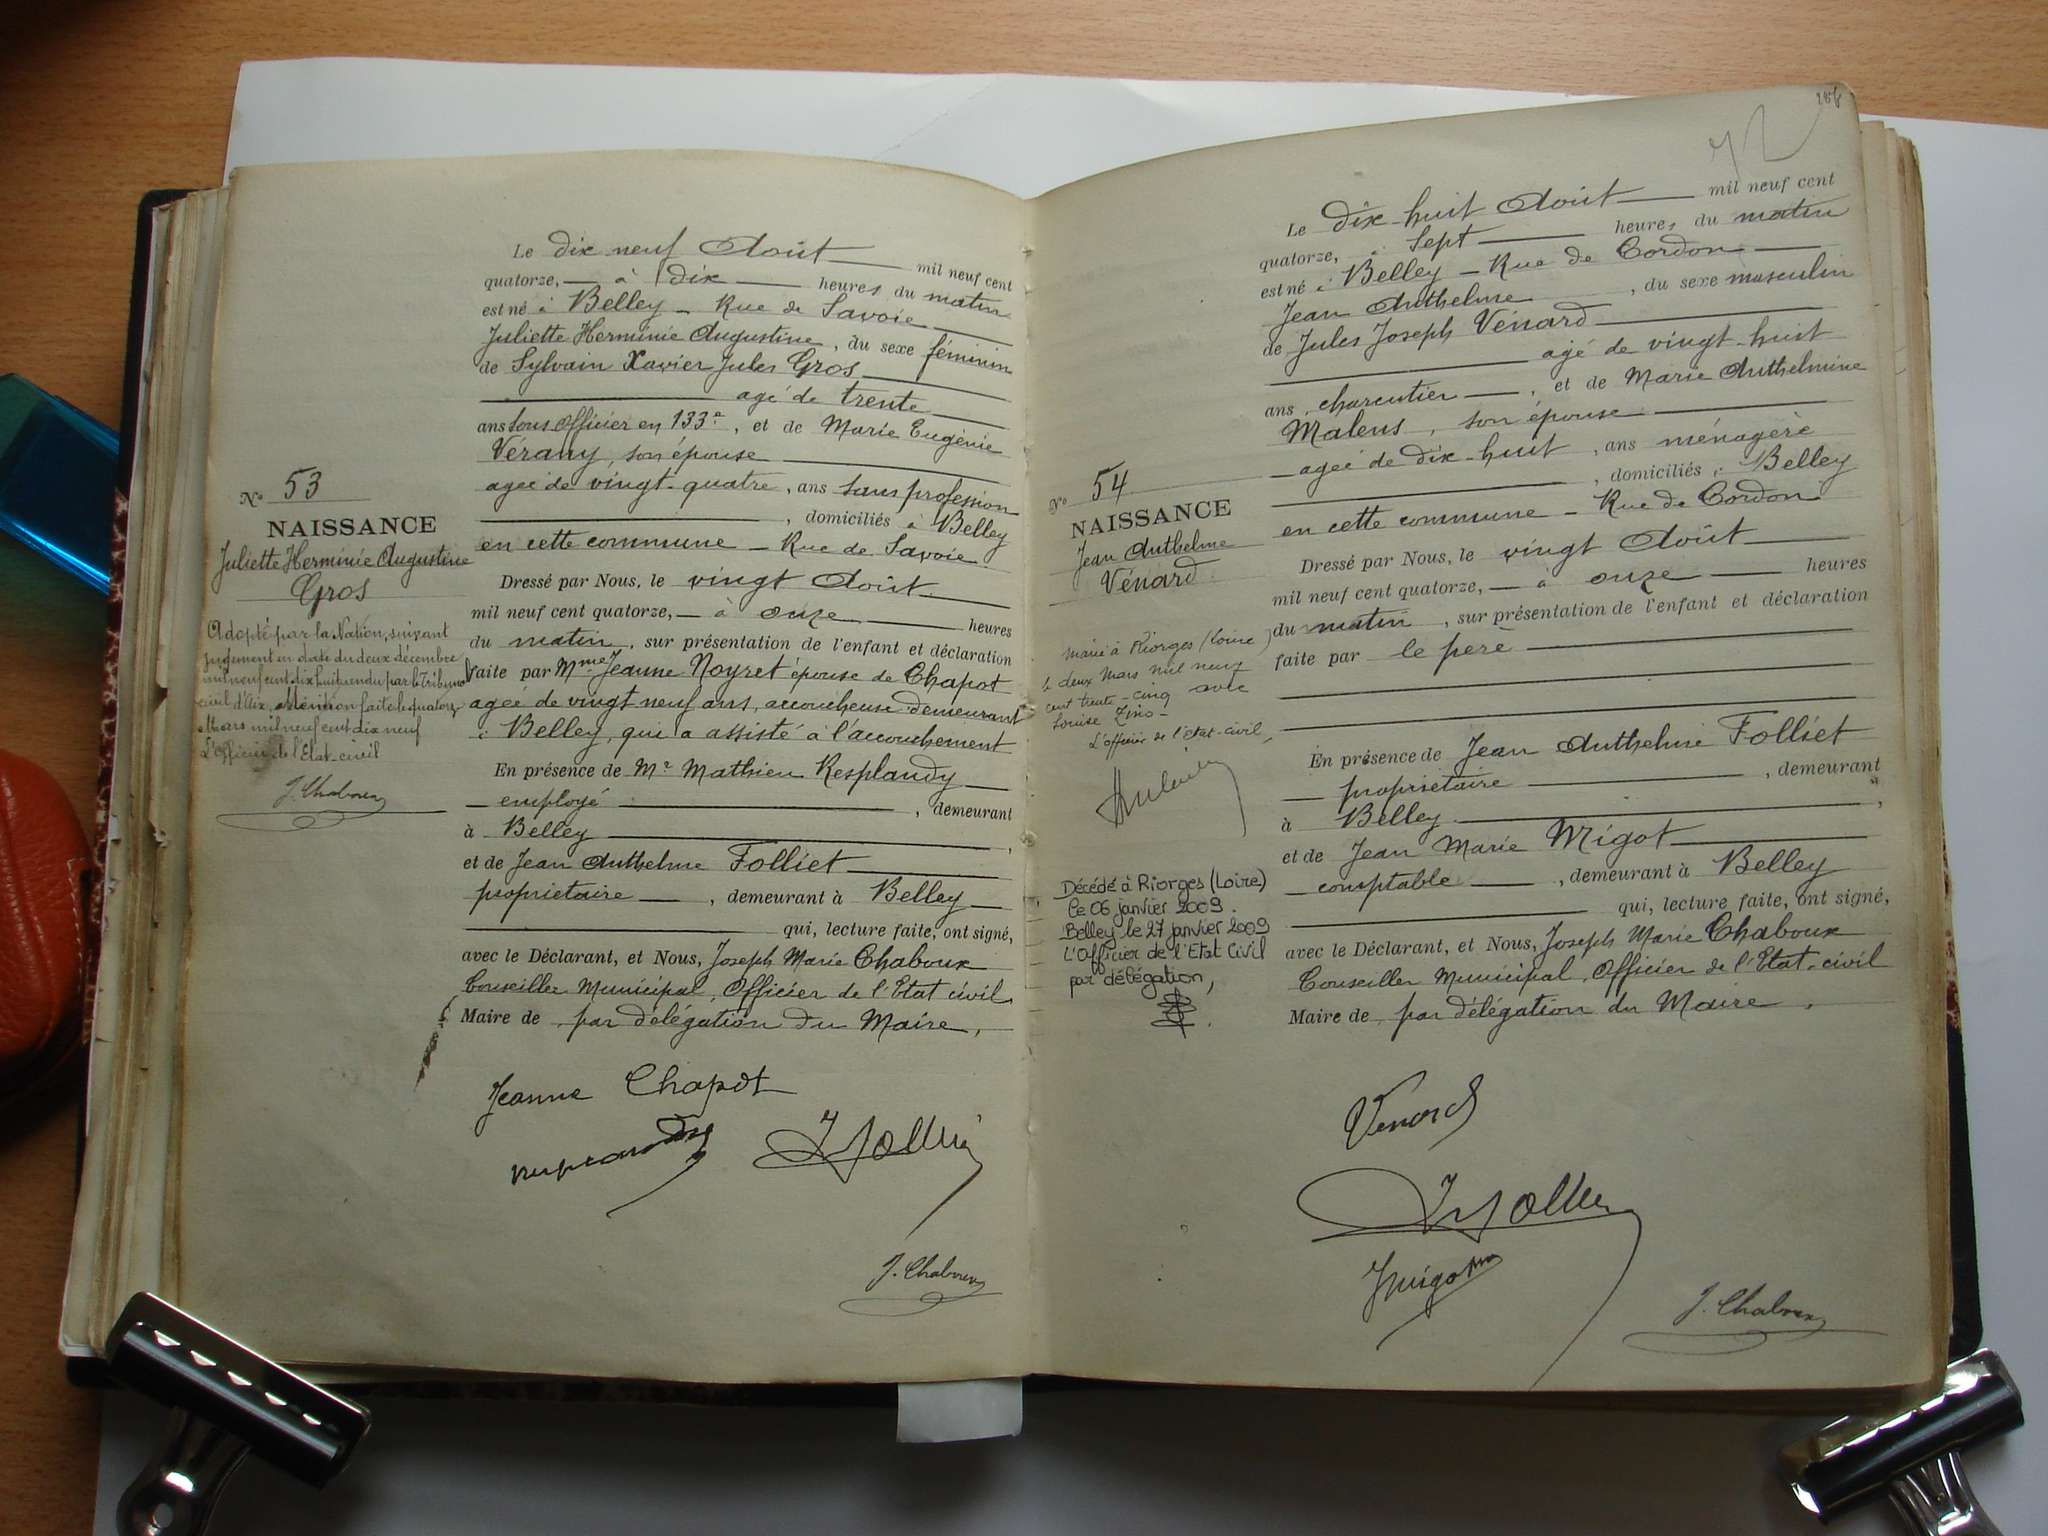 Le dix neuf Août mil neuf cent
quatorze, à dix heures du matin
est né à Belley - Rue de Savoie
Juliette Herminie Augustine, du sexe féminin
de Sylvain Xavier Jules Gros
agé de trente
ans Sous Officier en 133e, et de Marie Eugénie
Vérany, son épouse
agée de vingt-quatre, ans sans profession
, domiciliés à Belley
en cette commune - Rue de Savoie
Dressé par Nous, le vingt Août
mil neuf cent quatorze, - à onze heures
du matin, sur présentation de l'enfant et déclaration
faite par Mme Jeanne Noyret épouse de Chapot
agée de vingt neuf ans, accoucheuse demeurant
à Belley, qui a assisté à l'accouchement
En présence de Mr Mathieu Resplandy
employé, demeurant
à Belley,
et de Jean Anthelme Folliet
propriétaire, demeurant à Belley
qui, lecture faite, ont signé,
avec le Déclarant, et Nous, Joseph Marie Chaboux
Conseiller Municipal, Officier de l'Etat civil
Maire de par délégation du Maire,
Jeanne Chapot
J. Chaboux
No 53
NAISSANCE
Juliette Herminie Augustine
Gros
Adopté par la Nation, suivant
jugement en date du deux décembre
mil neuf cent dix huit rendu par le Tribunal
civil d'Aix, Mention faite le quatorze
Mars mil neuf cent dix neuf
L'Officier de l'Etat-civil
J. Chaboux
286
72
Le dix-huit Août mil neuf cent
quatorze, à Sept heures du matin
est né à Belley - Rue de Cordon
Jean Anthelme, du sexe masculin
de Jules Joseph Vénard
agé de vingt-huit
ans, charcutier, et de Marie Anthelmine
Malens, son épouse
agée de dix-huit, ans ménagère
, domiciliés à Belley
en cette commune - Rue de Cordon
Dressé par Nous, le vingt Août
mil neuf cent quatorze, - à onze heures
du matin, sur présentation de l'enfant et déclaration
faite par le père
En présence de Jean Anthelme Folliet
propriétaire, demeurant
à Belley,
et de Jean Marie Migot
comptable, demeurant à Belley
qui, lecture faite, ont signé,
avec le Déclarant, et Nous, Joseph Marie Chaboux
Conseiller Municipal, Officier de l'Etat-civil
Maire de par délégation du Maire,
Vénard
JMigot
J. Chaboux
No 54
NAISSANCE
Jean Anthelme
Vénard
Marié à Riorges (Loire)
le deux Mars mil neuf
cent trente-cinq avec
Louise Zino -
L'officier de l'Etat-civil,
Décédé à Riorges (Loire)
le 06 janvier 2009.
Belley le 27 janvier 2009
L'Officier de l'Etat Civil
par délégation,